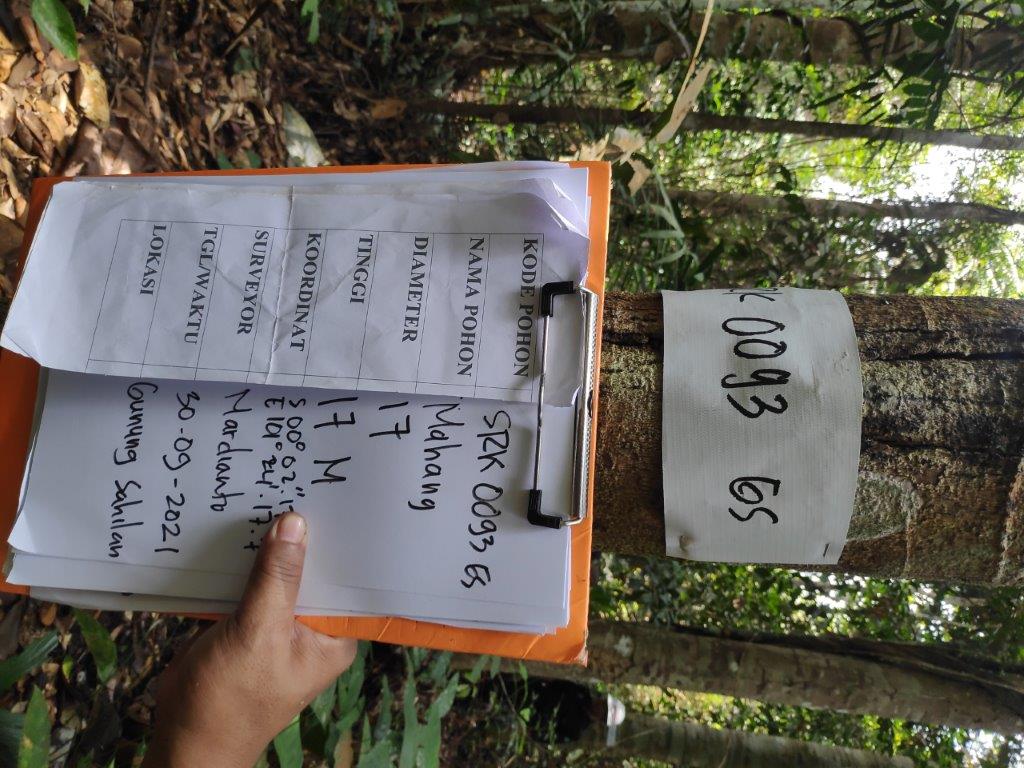 KODE POHON SRK 0093 GS
NAMA POHON Mahang
DIAMETER 17
TINGGI 17 M
KOORDINAT S 00° 02"
SURVEYOR Mardianto
TGL/WAKTU 30-09-2021
LOKASI Gunung Sahilan
0093 GS